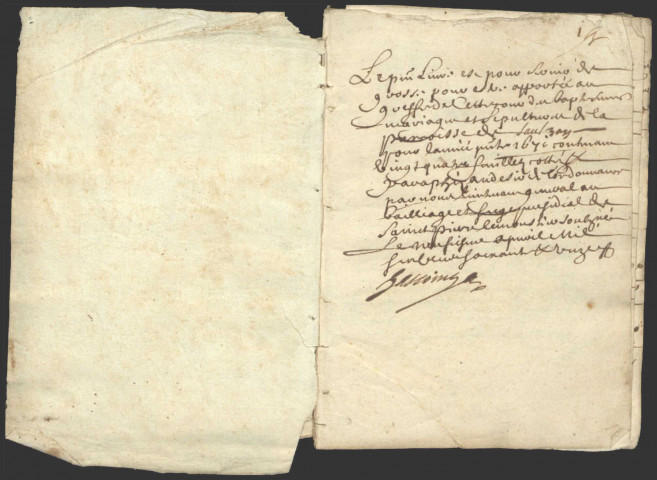 Le pnt Livre est pour servir de
grosse pour estre apporté au
greffe de cette cour des baptesmes
mariages et sepultures de la
Parroisse de Saulzay
pour l'année pnte 1671 contenant
vingt quatre feuillets cottés &
paraphé au desir de l'ordonnance
par nous lieutenant general au
bailliage et siege presidial de
Saint Pierre le moustier soubzné
Le neufiesme apvril Mil
six cens soixante & unze